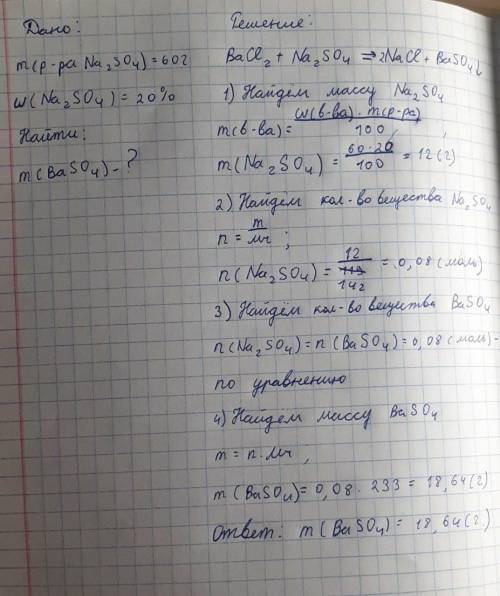 Дано:
m(р-ра Na₂SO₄) = 60г
w(Na₂SO₄) = 20%
Найти:
m(BaSO₄) - ?
Решение:
BaCl₂ + Na₂SO₄ ⇒ 2NaCl + BaSO₄↓
1) Найдем массу Na₂SO₄
m(в-ва) = w(в-ва) · m(р-ра) / 100 ;
m(Na₂SO₄) = 60·20 / 100 = 12 (г)
2) Найдем кол-во вещества Na₂SO₄
n = m / Mr ;
n(Na₂SO₄) = 12 / 142 = 0,08 (моль)
3) Найдём кол-во вещества BaSO₄
n(Na₂SO₄) = n(BaSO₄) = 0,08 (моль) -
по уравнению
4) Найдем массу BaSO₄
m = n · Mr ;
m(BaSO₄) = 0,08 · 233 = 18,64 (г)
Ответ: m(BaSO₄) = 18,64 (г)